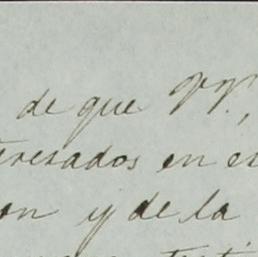 de que VV.,
teresados en es
on y de la